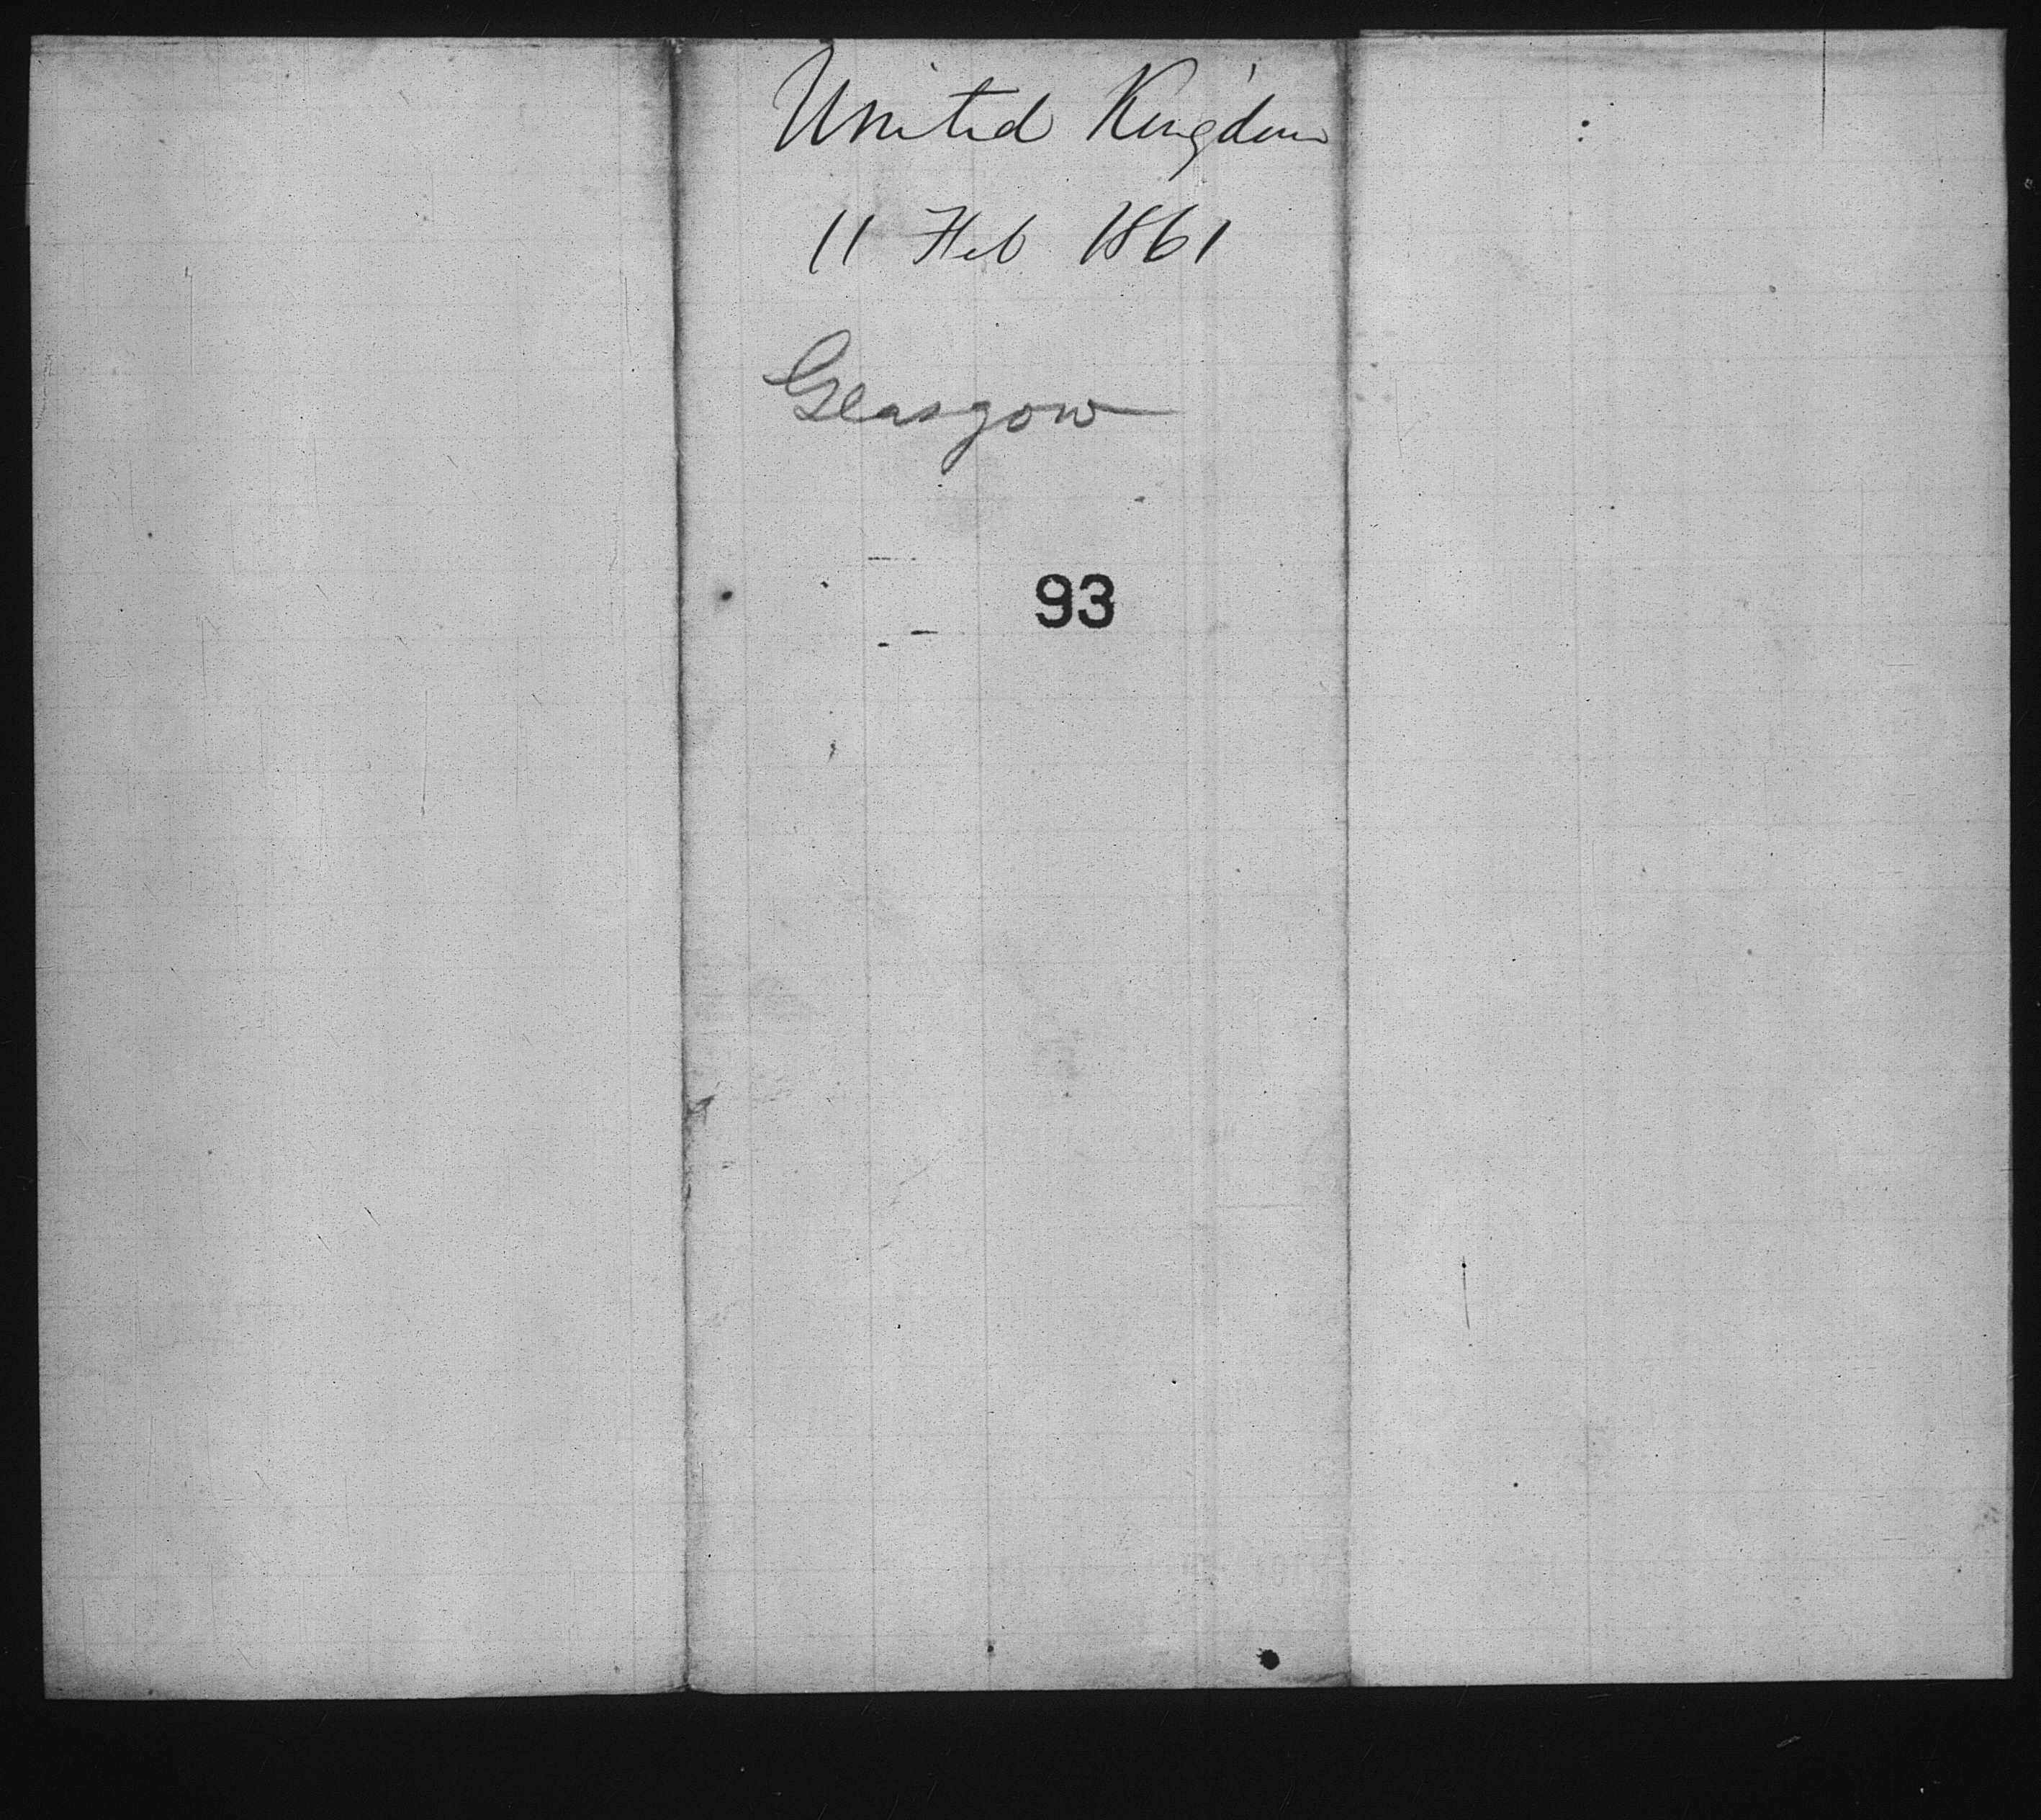 United Kingdom
11 Feb 1861
Glasgow
93